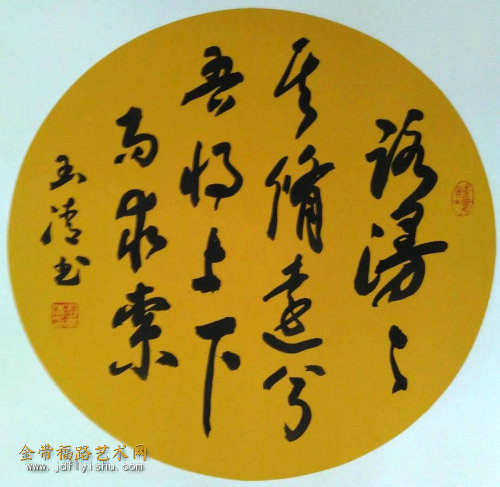 路漫々
其脩远兮
吾将上下
而求索
玉清书
金带福路艺术网
www.jdflyishu.com